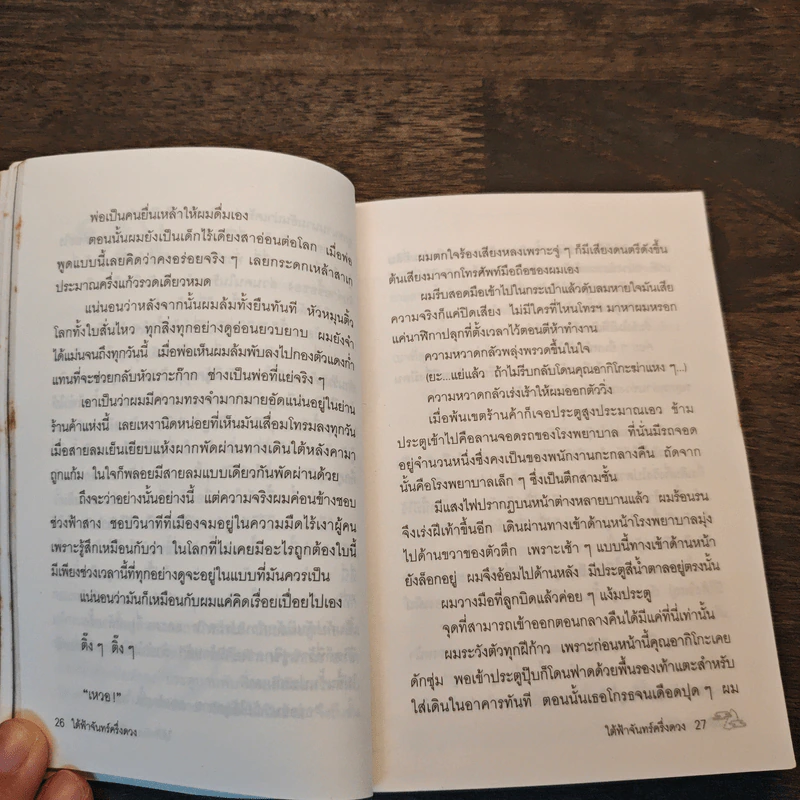 พ่อเป็นคนยื่นเหล้าให้ผมดื่มเอง
ตอนนั้นผมยังเป็นเด็กไร้เดียงสาอ่อนต่อโลก เมื่อพ่อ
พูดแบบนี้เลยคิดว่าคงอร่อยจริง ๆ เลยกระดกเหล้าสาเก
ประมาณครึ่งแก้วรวดเดียวหมด
แน่นอนว่าหลังจากนั้นผมล้มทั้งยืนทันที หัวหมุนติ้ว
โลกทั้งใบสั่นไหว ทุกสิ่งทุกอย่างดูอ่อนยวบยาบ ผมยังจำ
ได้แม่นจนถึงทุกวันนี้ เมื่อพ่อเห็นผมล้มพับลงไปกองตัวแดงก่ำ
แทนที่จะช่วยกลับหัวเราะก๊าก ช่างเป็นพ่อที่แย่จริง ๆ
เอาเป็นว่าผมมีความทรงจำมากมายอัดแน่นอยู่ในย่าน
ร้านค้าแห่งนี้ เลยเหงานิดหน่อยที่เห็นมันเสื่อมโทรมลงทุกวัน
เมื่อสายลมเย็นเยียบแห้งผากพัดผ่านทางเดินใต้หลังคามา
ถูกแก้ม ในใจก็พลอยมีสายลมแบบเดียวกันพัดผ่านด้วย
ถึงจะว่าอย่างนั้นอย่างนี้ แต่ความจริงผมค่อนข้างชอบ
ช่วงฟ้าสาง ชอบวินาทีที่เมืองจมอยู่ในความมืดไร้เงาผู้คน
เพราะรู้สึกเหมือนกับว่า ในโลกที่ไม่เคยมีอะไรถูกต้องใบนี้
มีเพียงช่วงเวลานี้ที่ทุกอย่างดูจะอยู่ในแบบที่มันควรเป็น
แน่นอนว่ามันก็เหมือนกับผมแค่คิดเรื่อยเปื่อยไปเอง
ติ๊ง ๆ ติ๊ง ๆ
"เหวอ!"
26 ใต้ฟ้าจันทร์ครึ่งดวง
ผมตกใจร้องเสียงหลงเพราะจู่ ๆ ก็มีเสียงดนตรีดังขึ้น
ต้นเสียงมาจากโทรศัพท์มือถือของผมเอง
ผมรีบสอดมือเข้าไปในกระเป๋าแล้วดับลมหายใจมันเสีย
ความจริงก็แค่ปิดเสียง ไม่มีใครที่ไหนโทรฯ มาหาผมหรอก
แค่นาฬิกาปลุกที่ตั้งเวลาไว้ตอนตีห้าทำงาน
ความหวาดกลัวพลุ่งพรวดขึ้นในใจ
(ยะ...แย่แล้ว ถ้าไม่รีบกลับโดนคุณอากิโกะฆ่าแหง ๆ...)
ความหวาดกลัวเร่งเร้าให้ผมออกตัววิ่ง
เมื่อพ้นเขตร้านค้าก็เจอประตูสูงประมาณเอว ข้าม
ประตูเข้าไปคือลานจอดรถของโรงพยาบาล ที่นั่นมีรถจอด
อยู่จำนวนหนึ่งซึ่งคงเป็นของพนักงานกะกลางคืน ถัดจาก
นั้นคือโรงพยาบาลเล็ก ๆ ซึ่งเป็นตึกสามชั้น
มีแสงไฟปรากฏบนหน้าต่างหลายบานแล้ว ผมร้อนรน
จึงเร่งฝีเท้าขึ้นอีก เดินผ่านทางเข้าด้านหน้าโรงพยาบาลมุ่ง
ไปด้านขวาของตัวตึก เพราะเช้า ๆ แบบนี้ทางเข้าด้านหน้า
ยังล็อกอยู่ ผมจึงอ้อมไปด้านหลัง มีประตูสีน้ำตาลอยู่ตรงนั้น
ผมวางมือที่ลูกบิดแล้วค่อย ๆ แง้มประตู
จุดที่สามารถเข้าออกตอนกลางคืนได้มีแค่ที่นี่เท่านั้น
ผมระวังตัวทุกฝีก้าว เพราะก่อนหน้านี้คุณอากิโกะเคย
ดักซุ่ม พอเข้าประตูปุ๊บก็โดนฟาดด้วยพื้นรองเท้าแตะสำหรับ
ใส่เดินในอาคารทันที ตอนนั้นเธอโกรธจนเดือดปุด ๆ ผม
ใต้ฟ้าจันทร์ครึ่งดวง 27